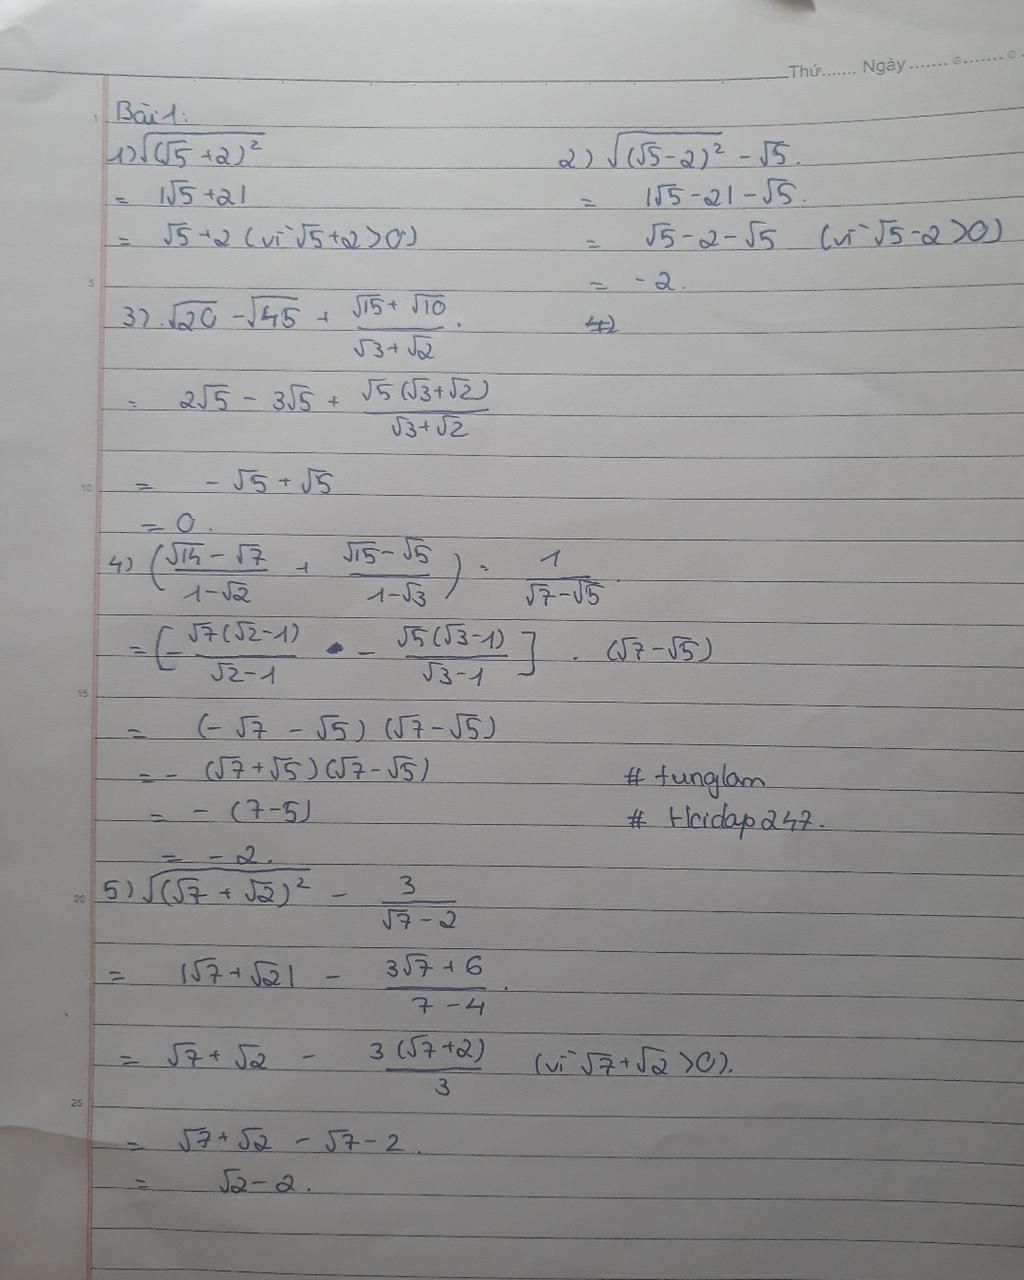 Thứ....... Ngày ....... ©....... ©.
Bài 1:
1) √(√5 + 2)²
= |√5 + 2|
= √5 + 2 (vì √5 + 2 > 0)
2) √(√5 - 2)² - √5.
= |√5 - 2| - √5.
= √5 - 2 - √5 (vì √5 - 2 > 0)
= -2.
3) √20 - √45 + (√15 + √10)/(√3 + √2).
= 2√5 - 3√5 + √5(√3 + √2)/(√3 + √2)
= -√5 + √5
= 0.
4) ((√14 - √7)/(1 - √2) + (√15 - √5)/(1 - √3)) : 1/(√7 - √5).
= [-√7(√2 - 1)/(√2 - 1) - √5(√3 - 1)/(√3 - 1)] . (√7 - √5)
= (-√7 - √5)(√7 - √5)
= -(√7 + √5)(√7 - √5)
= -(7 - 5)
= -2.
# tunglam
# Hoidap247.
5) √(√7 + √2)² - 3/(√7 - 2)
= |√7 + √2| - (3√7 + 6)/(7 - 4).
= √7 + √2 - 3(√7 + 2)/3 (vì √7 + √2 > 0).
= √7 + √2 - √7 - 2.
= √2 - 2.
5
10
15
20
25